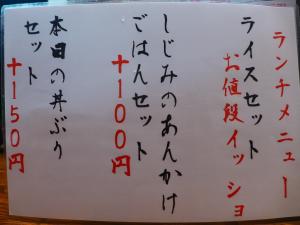 ランチメニュー
ライスセット
お値段イッショ
しじみのあんかけ
ごはんセット
+100円
本日の丼ぶり
セット
+150円